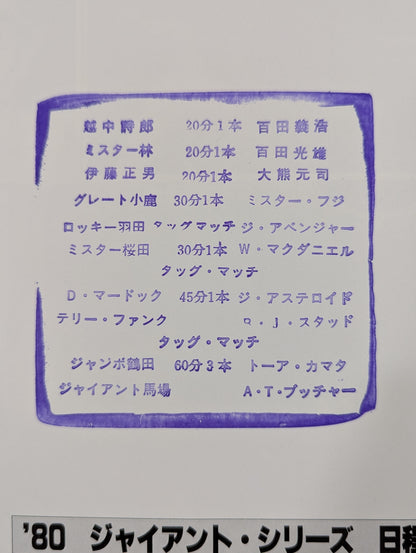 越中詩郎 20分1本 百田義浩
ミスター林 20分1本 百田光雄
伊藤正男 20分1本 大熊元司
グレート小鹿 30分1本 ミスター・フジ
ロッキー羽田 タッグマッチ ジ・アベンジャー
ミスター桜田 30分1本 W・マクダニエル
タッグ・マッチ
D・マードック 45分1本 ジ・アステロイド
テリー・ファンク R・J・スタッド
タッグ・マッチ
ジャンボ鶴田 60分3本 トーア・カマタ
ジャイアント馬場 A・T・ブッチャー
'80 ジャイアント・シリーズ 日